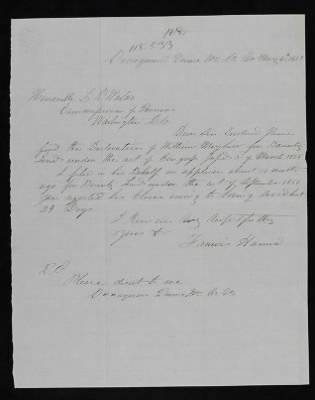 118,533
Occoquan Prince Wm Co Va
Honorable L P Waldo
Commissioner of Pensions
Washington D.C.
Dear Sir Enclosed please
find the Declaration of William for Bounty
Land under the act of Congress 3rd of March 1855
I filed in his Behalf an application about
ago for Bounty Land under the act of September 1850
you rejected his claim owing to
29 Days
I Remain very Respectfully
yours &
Francis Hanna
P.S.
Please direct to me
Occoquan Prince Wm Co Va